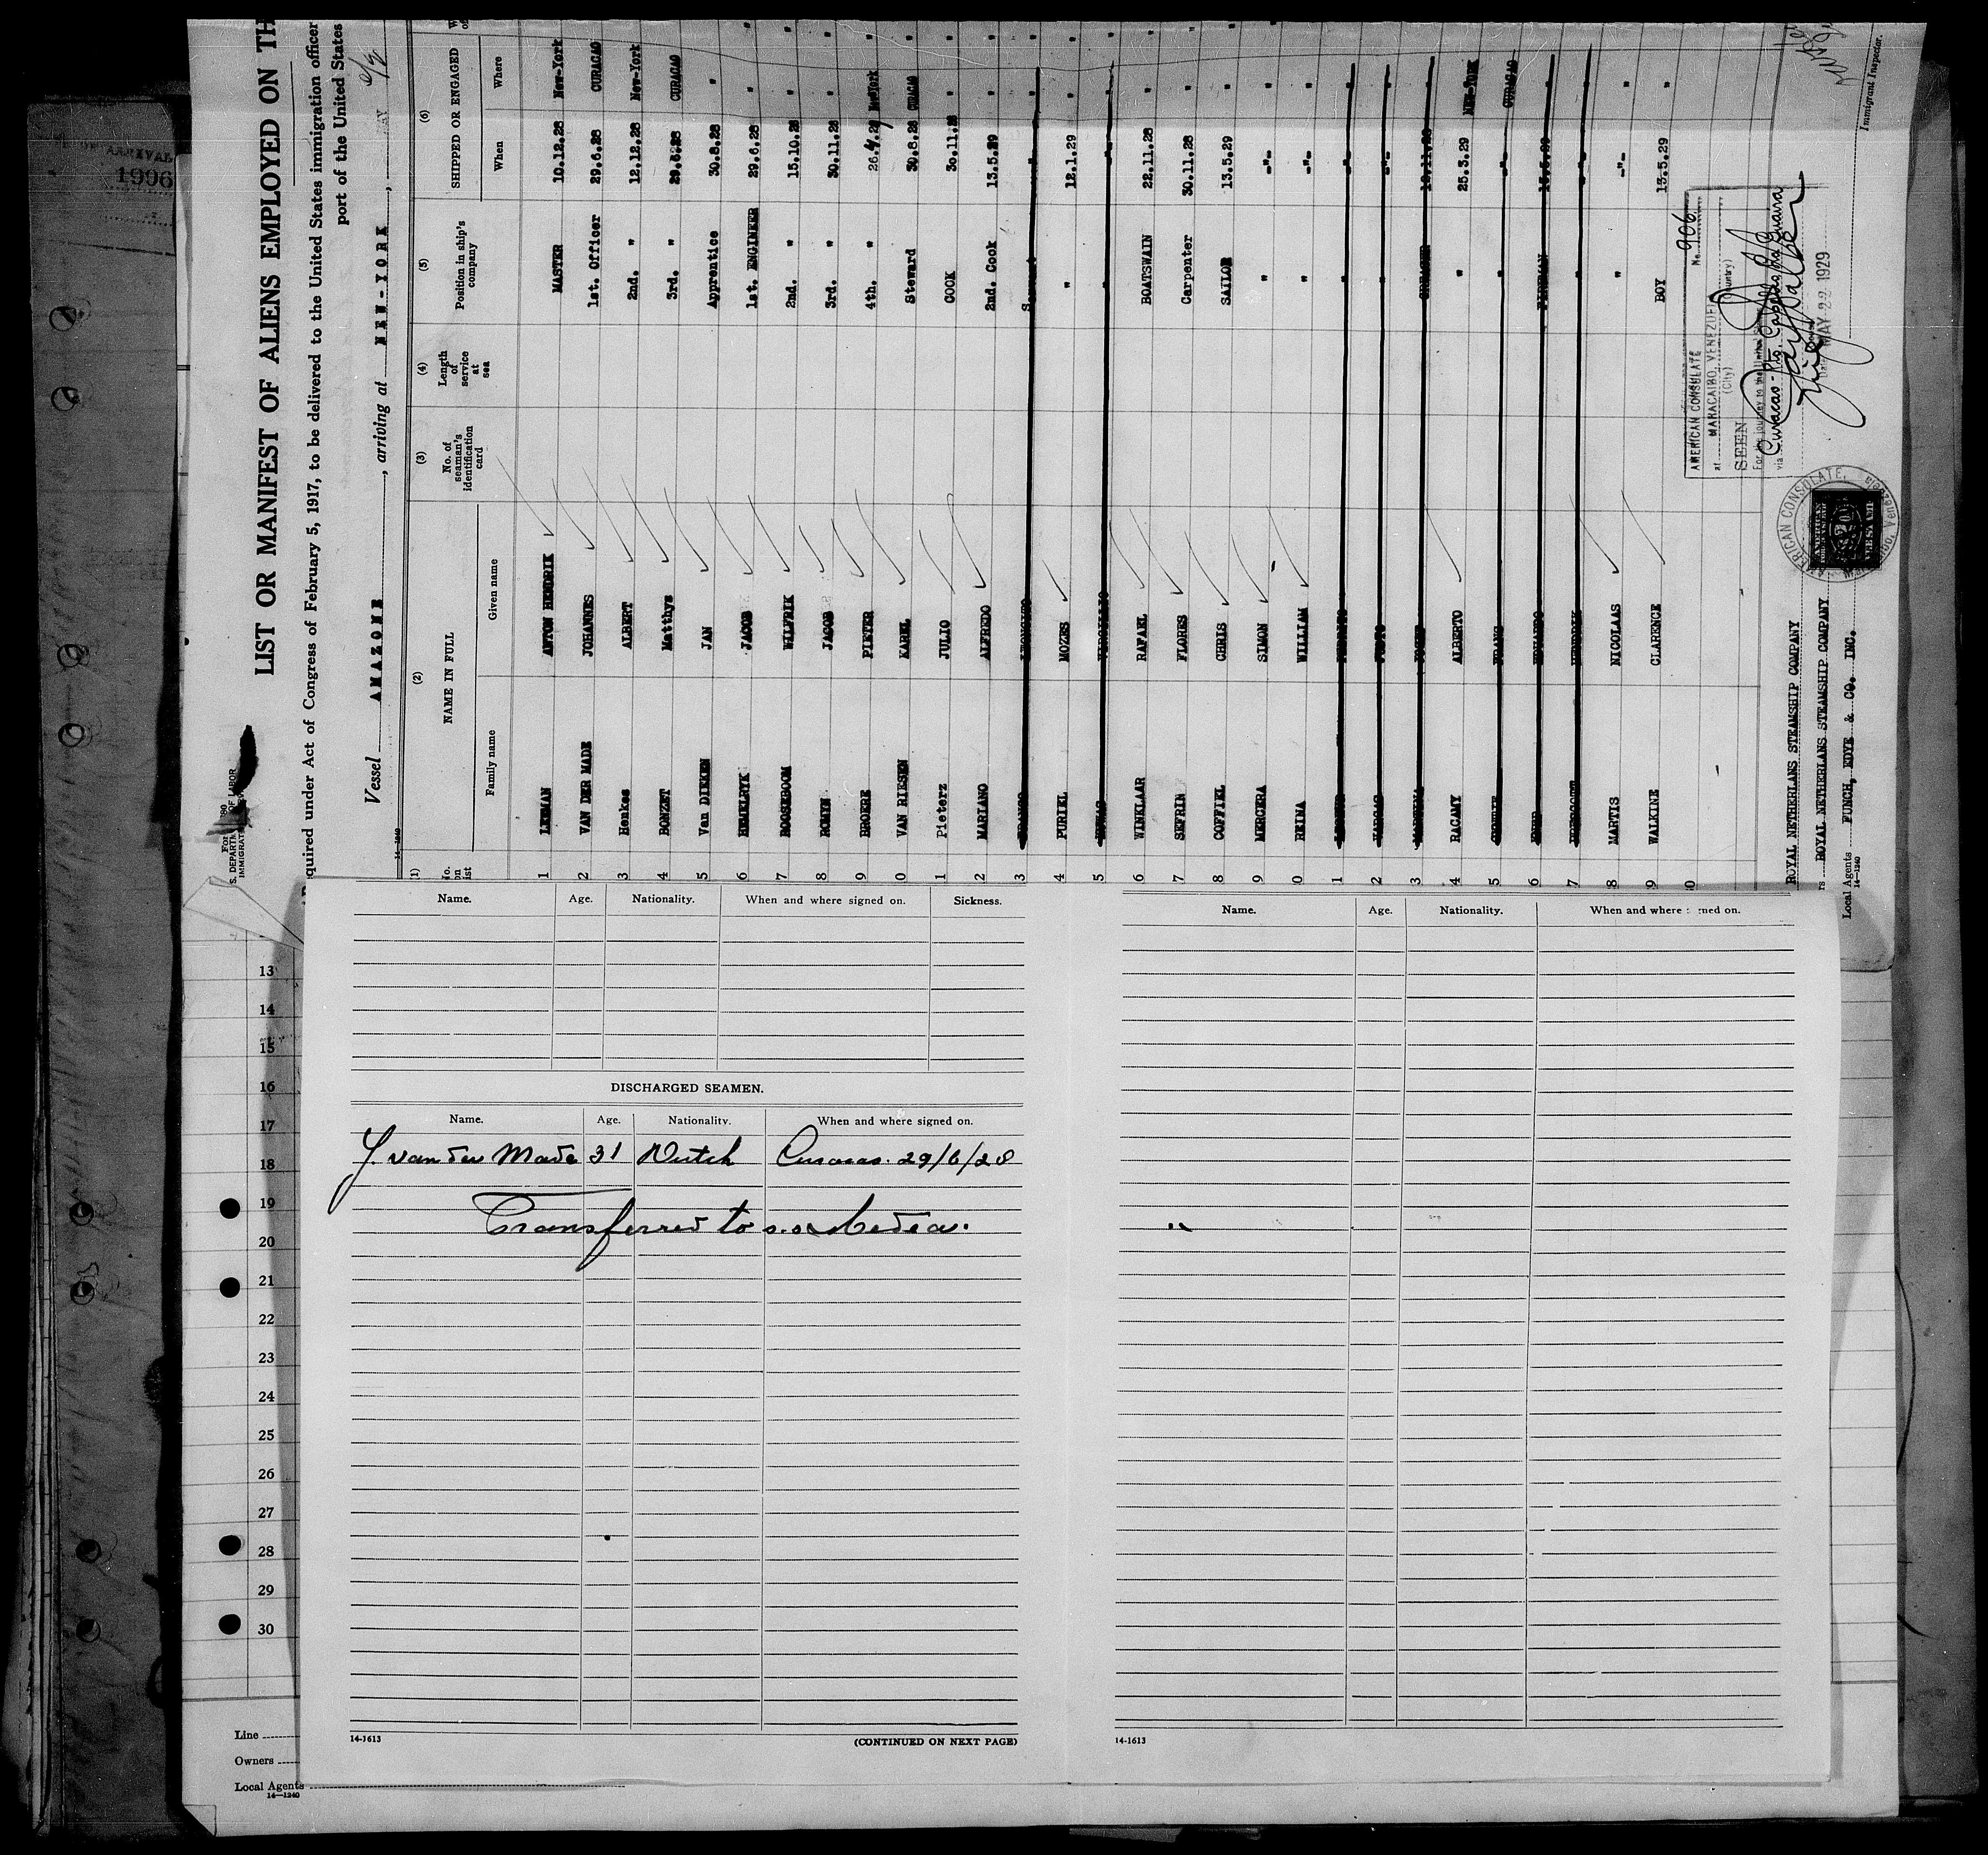 LIST OR MANIFEST OF ALIENS EMPLOYED ON TH
Required under Act of Congress of February 5, 1917, to be delivered to the United States immigration officer
port of the United States
Vessel AMAZONE, arriving at NEW-YORK,
(1) (2) (3) (4) (5) (6)
NAME IN FULL
No. of seaman's identification card
Length of service at sea
Position in ship's company
SHIPPED OR ENGAGED
Family name Given name When Where
1 LEEMAN ANTON HENDRIK MASTER 10.12.28 New-York
2 VAN DER MADE JOHANNES 1st. Officer 29.6.28 CURACAO
3 Henkes ALBERT 2nd. " 12.12.28 New-York
4 BONZET Matthys 3rd. " 29.6.28 CURACAO
5 Van DIEKEN JAN Apprentice 30.8.28 "
6 HEMELRYK JACOB 1st. ENGINEER 29.6.28 "
7 ROOSEBOOM WILFRIK 2nd. " 15.10.28 "
8 ROMYN JACOB 3rd. " 30.11.28 "
9 BROERE PIETER 4th. " 26.4.29 New York
0 VAN RIESEN KAREL Steward 30.8.28 CURACAO
1 Pieterz JULIO COOK 30.11.28 "
2 MARIANO ALFREDO 2nd. Cook 13.5.29 "
3
4 PURIEL MOZES " 12.1.29 "
5
6 WINKLAAR RAFAEL BOATSWAIN 22.11.28 "
7 SEFRIN FLORES Carpenter 30.11.28 "
8 COFFIEL CHRIS SAILOR 13.5.29 "
9 MERCERA SIMON " -"- "
0 REINA WILLIAM " -"- "
1
2
3
4 RACAMY ALBERTO " 25.3.29 NEW-YORK
5 CURACAO
6
7
8 MARTIS NICOLAAS " -"- "
9 WALKINE CLARENCE BOY 13.5.29 "
0
AMERICAN CONSULATE
at MARACAIBO, VENEZUELA
(City) (Country)
No. 906
SEEN
For the journey to the United States
via Curacao-Pto. Cabello-La Guaira
MAY 22 1929
AMERICAN CONSULATE
Immigrant Inspector.
ROYAL NETERLANS STEAMSHIP COMPANY
ROYAL NETHERLANS STEAMSHIP COMPANY
Local Agents FUNCH, EDYE & CO. INC.
14-1240
Name. Age. Nationality. When and where signed on. Sickness.
DISCHARGED SEAMEN.
Name. Age. Nationality. When and where signed on.
J. van der Made 31 Dutch Curacao 29/6/28
Transferred to s.s. Medea.
14-1613
(CONTINUED ON NEXT PAGE)
Name. Age. Nationality. When and where signed on.
14-1613
13
14
15
16
17
18
19
20
21
22
23
24
25
26
27
28
29
30
Line
Owners
Local Agents
14-1240
ARRIVAL
1996